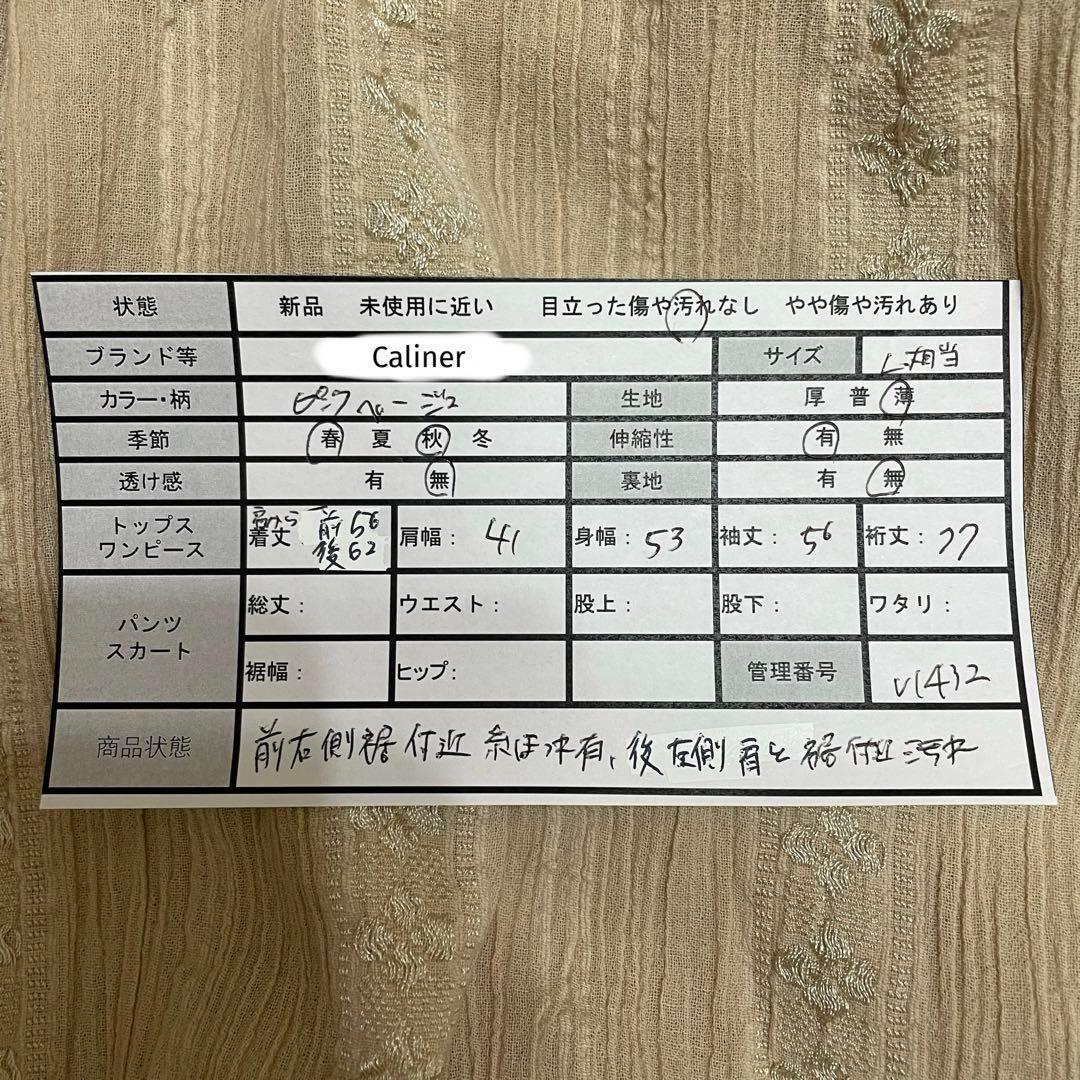 状態 新品 未使用に近い 目立った傷や汚れなし やや傷や汚れあり
ブランド等 Caliner サイズ L相当
カラー・柄 ピンクベージュ 生地 厚 普 薄
季節 春 夏 秋 冬 伸縮性 有 無
透け感 有 無 裏地 有 無
トップス ワンピース 肩から 着丈 前56 後62 肩幅: 41 身幅: 53 袖丈: 56 裄丈: 77
パンツ スカート 総丈: ウエスト: 股上: 股下: ワタリ:
裾幅: ヒップ: 管理番号 V1432
商品状態 前右側裾付近 糸ほつれ有、後左側肩と裾付近汚れ